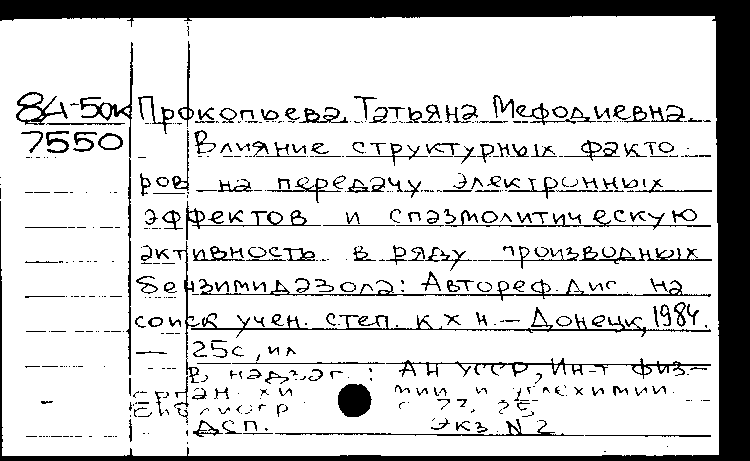 84-50к Прокопьева, Татьяна Мефодиевна.
7550 Влияние структурных факто
ров на передачу электронных
эффектов и спазмолитическую
активность в ряду производных
бензимидазола: Автореф. дис. на
соиск учен. степ. к.х н. – Донецк, 1984.
– 25с, ил
В надзаг.: АН УССР, Ин-т физ–
орган. хи мии и углехимии.
Библиогр с 23, 25
ДСП. Экз N 2.